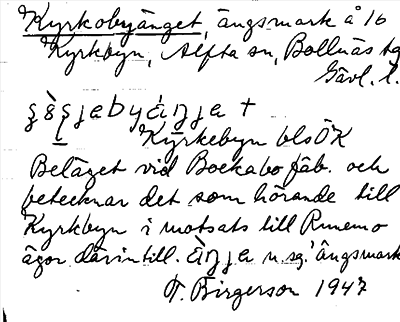 Kyrkobyänget, ängsmark å 16
Kyrkbyn, Alfta sn, Bollnäs tg
Gävl. l.
Kyrkebyn bls ÖK
Beläget vid Bockabo fäb. och
betecknar det som hörande till
Kyrkbyn i motsats till Runemo
ägor därintill. u. sg. ängsmark
T. Birgerson 1947